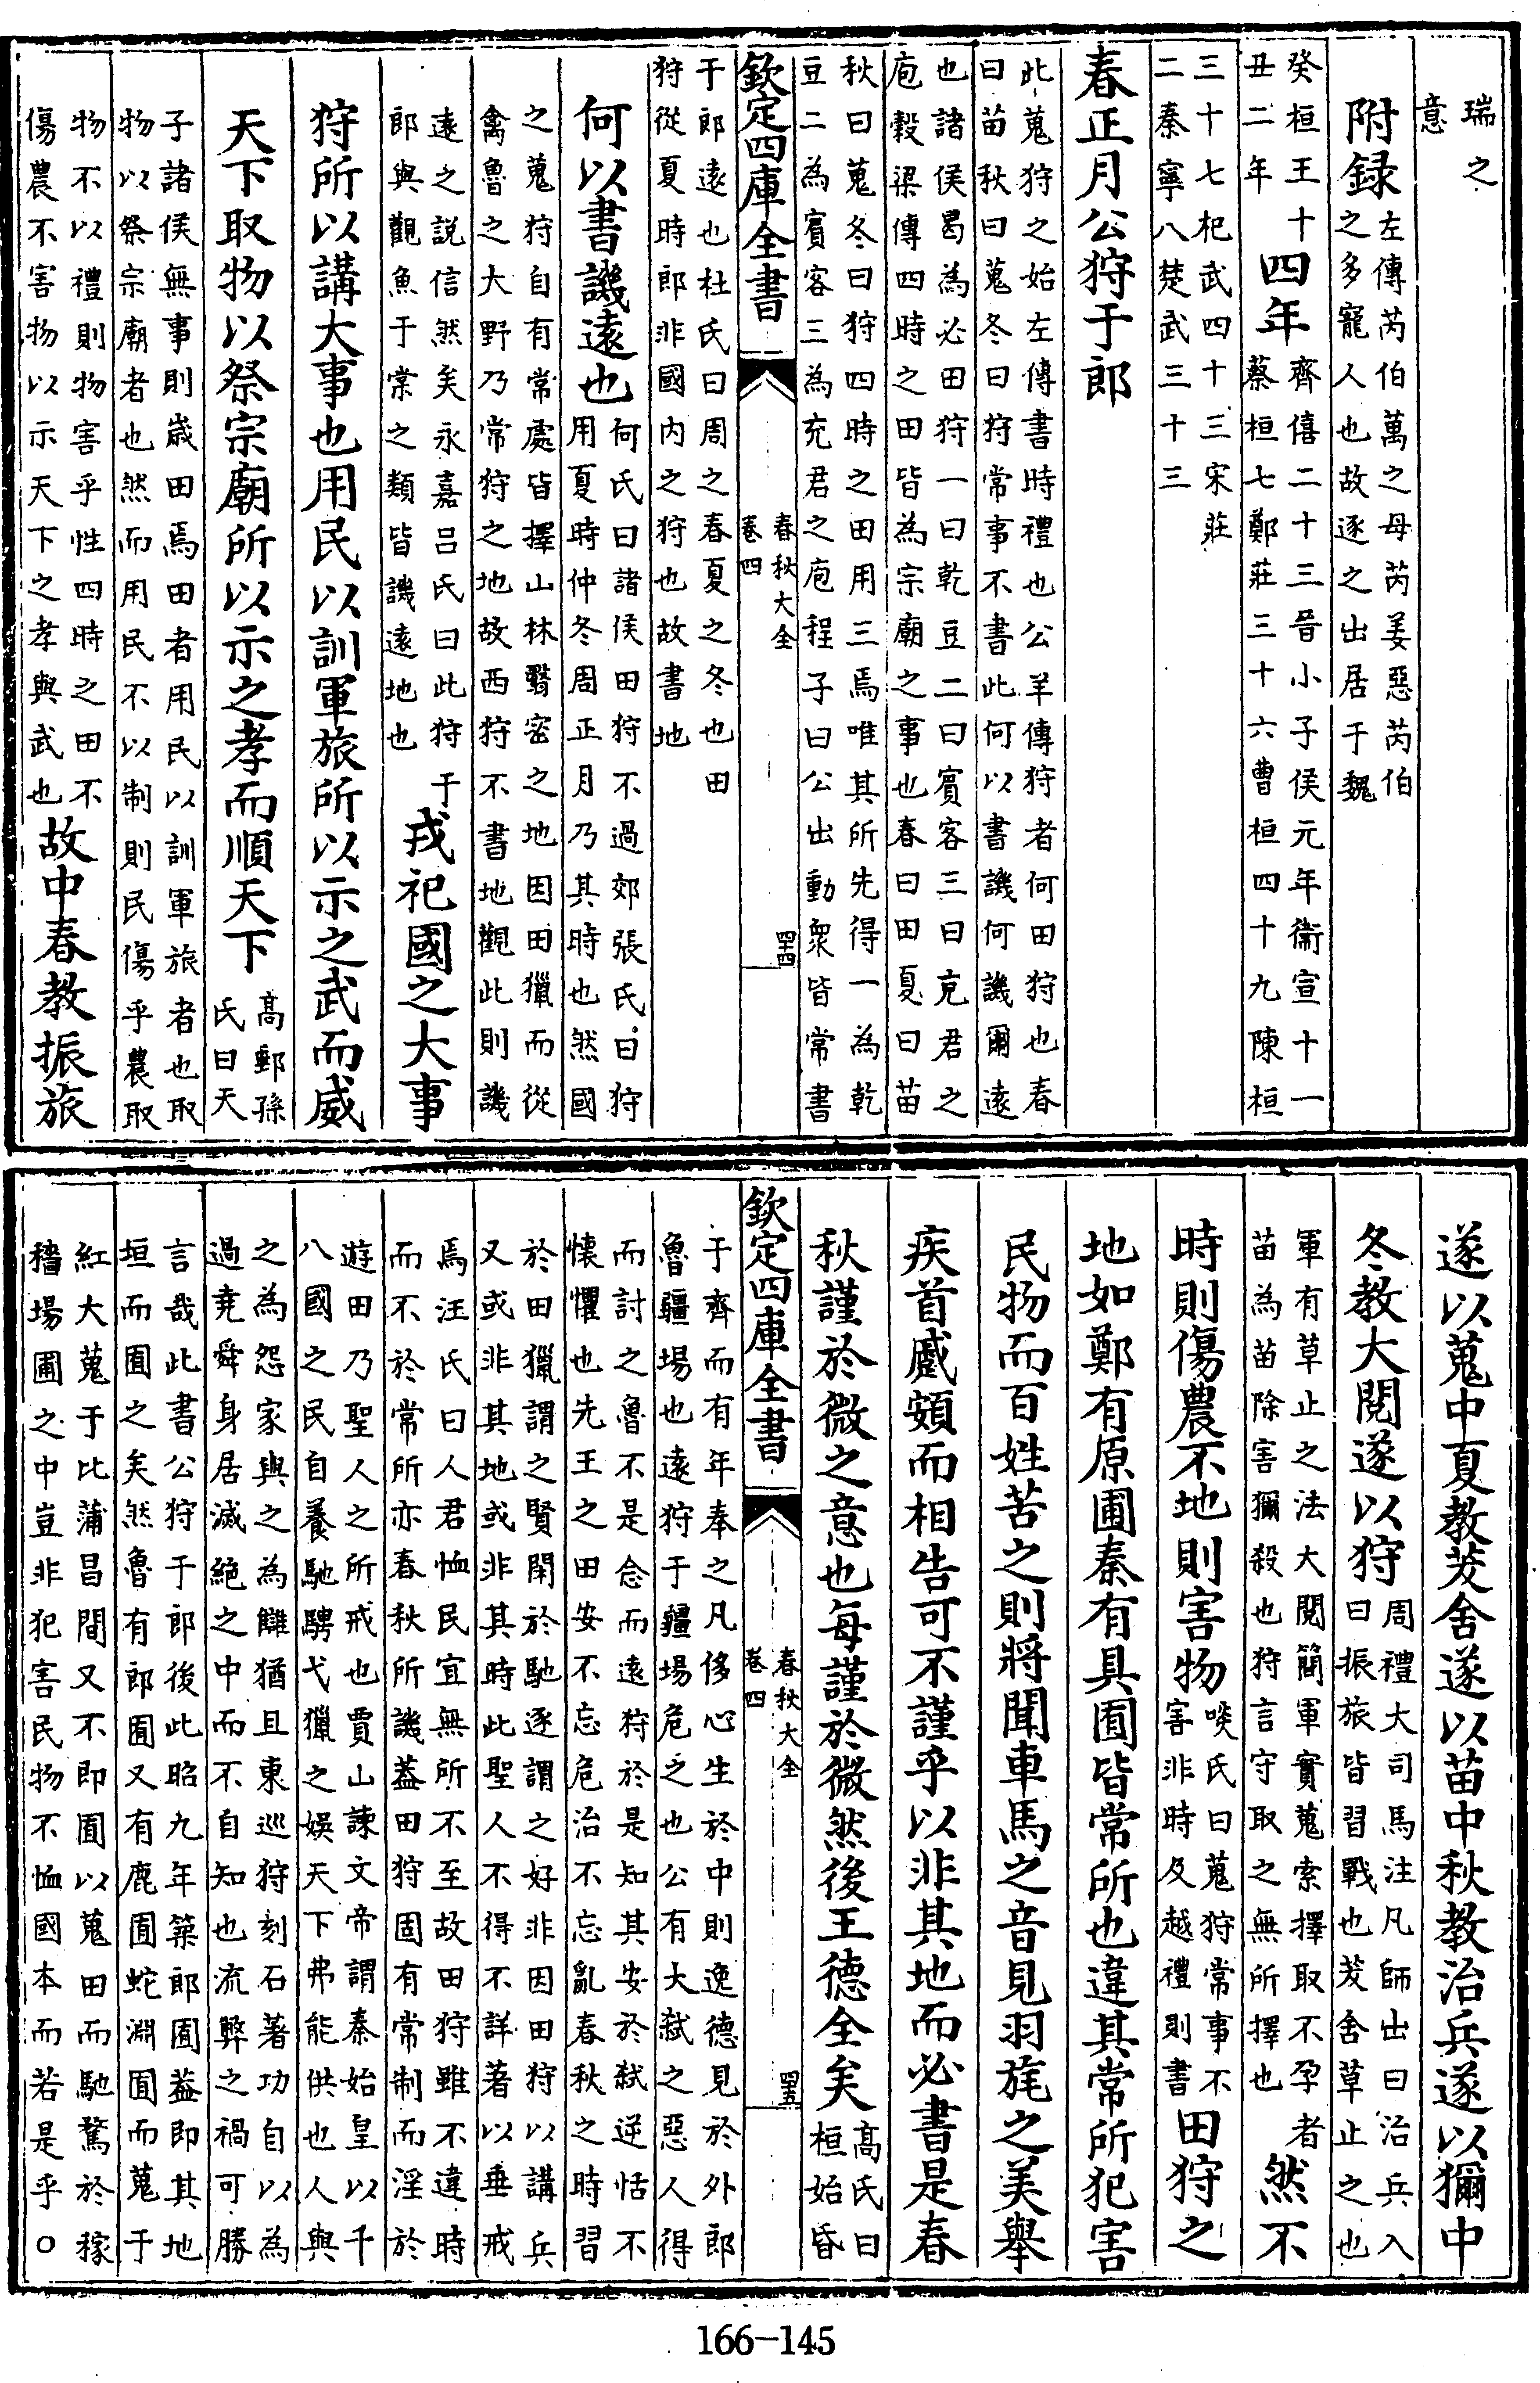 瑞之
意
附録左傳芮伯萬之母芮姜惡芮伯
之多寵人也故逐之出居于魏
癸桓王十四年齊僖二十三晉小子侯元年衞宣十一
丑二年蔡桓七鄭莊三十六曹桓四十九陳桓
三十七杞武四十三宋莊
二秦寧八楚武三十三
春正月公狩于郎
此蒐狩之始左傳書時禮也公羊傳狩者何田狩也春
曰苗秋曰蒐冬曰狩常事不書此何以書譏何譏爾遠
也諸侯曷為必田狩一曰乾豆二曰賓客三曰充君之
庖穀梁傳四時之田皆為宗廟之事也春曰田夏曰苗
秋曰蒐冬曰狩四時之田用三焉唯其所先得一為乾
豆二為賓客三為充君之庖程子曰公出動衆皆常書
欽定四庫全書
春秋大全
卷四
四十四
于郎遠也杜氏曰周之春夏之冬也田
狩從夏時郎非國内之狩也故書地
何以書譏遠也何氏曰諸侯田狩不過郊張氏曰狩
用夏時仲冬周正月乃其時也然國
之蒐狩自有常處皆擇山林翳宻之地因田獵而從
禽魯之大野乃常狩之地故西狩不書地觀此則譏
遠之說信然矣永嘉吕氏曰此狩于
郎與觀魚于棠之類皆譏遠地也戎祀國之大事
狩所以講大事也用民以訓軍旅所以示之武而威
天下取物以祭宗廟所以示之孝而順天下髙郵孫
氏曰天
子諸侯無事則歲田焉田者用民以訓軍旅者也取
物以祭宗廟者也然而用民不以制則民傷乎農取
物不以禮則物害乎性四時之田不
傷農不害物以示天下之孝與武也故中春教振旅
遂以蒐中夏教茇舍遂以苗中秋教治兵遂以獮中
冬教大閱遂以狩周禮大司馬注凡師出曰治兵入
曰振旅皆習戰也茇舍草止之也
軍有草止之法大閱簡軍實蒐索擇取不孕者
苗為苗除害獮殺也狩言守取之無所擇也然不
時則傷農不地則害物啖氏曰蒐狩常事不
害非時及越禮則書田狩之
地如鄭有原圃秦有具囿皆常所也違其常所犯害
民物而百姓苦之則將聞車馬之音見羽旄之美舉
疾首蹙頞而相告可不謹乎以非其地而必書是春
秋謹於微之意也每謹於微然後王德全矣髙氏曰
桓始昏
欽定四庫全書
春秋大全
卷四
四十五
于齊而有年奉之凡侈心生於中則逸德見於外郎
魯疆場也逺狩于疆場危之也公有大弑之惡人得
而討之魯不是念而逺狩於是知其安於弑逆恬不
懐懼也先王之田安不忘危治不忘亂春秋之時習
於田獵謂之賢閑於馳逐謂之好非因田狩以講兵
又或非其地或非其時此聖人不得不詳著以垂戒
焉汪氏曰人君恤民宜無所不至故田狩雖不違時
而不於常所亦春秋所譏葢田狩固有常制而淫於
遊田乃聖人之所戒也賈山諫文帝謂秦始皇以千
八國之民自養馳騁弋獵之娱天下弗能供也人與
之為怨家與之為讎猶且東巡狩刻石著功自以為
過堯舜身居滅絶之中而不自知也流弊之禍可勝
言哉此書公狩于郎後此昭九年築郎囿葢即其地
垣而囿之矣然魯有郎囿又有鹿囿蛇淵囿而蒐于
紅大蒐于比蒲昌間又不即囿以蒐田而馳騖於稼
穡場圃之中豈非犯害民物不恤國本而若是乎○
166-145